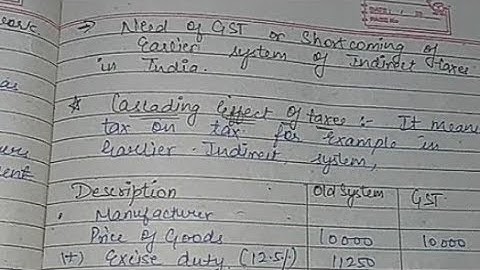 DATE:
PAGE No.
→ Need of GST or Shortcoming of
Earlier system of indirect taxes
in India.
* Cascading Effect of taxes :- It means
tax on tax for example in
Earlier Indirect system,
Description Old System GST
Manufacturer
Price of Goods 10000 10,000
(+) Excise duty (12.5%) 11250